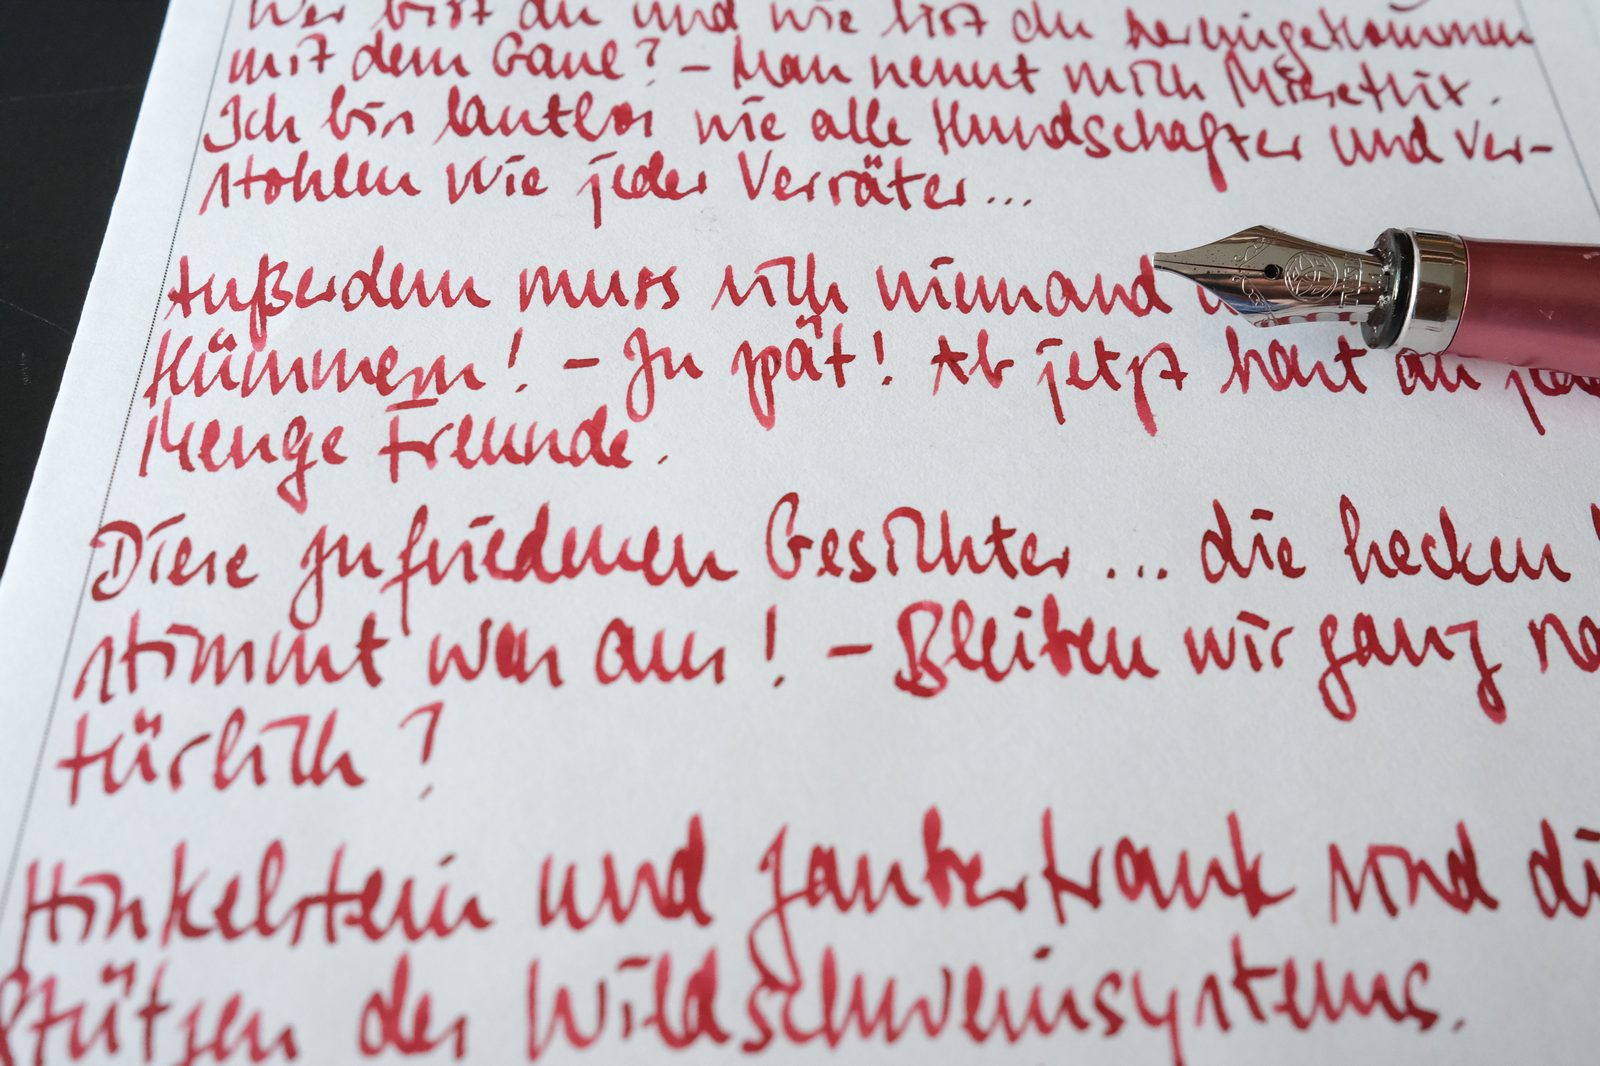 Wer bist du und wie bist du hereingekommen
mit dem Gaul? – Man nennt mich
Ich bin lautlos wie alle Kundschafter und ver-
stohlen wie jeder Verräter...
Außerdem muss sich niemand
kümmern! – Zu spät! Ab jetzt hast du jede
Menge Freunde.
Diese zufriedenen Gesichter... die hecken
stimmt was aus! – Bleiben wir ganz na
türlich?
Hinkelstein und Zaubertrank sind di
Stützen des Wildschweinsystems.